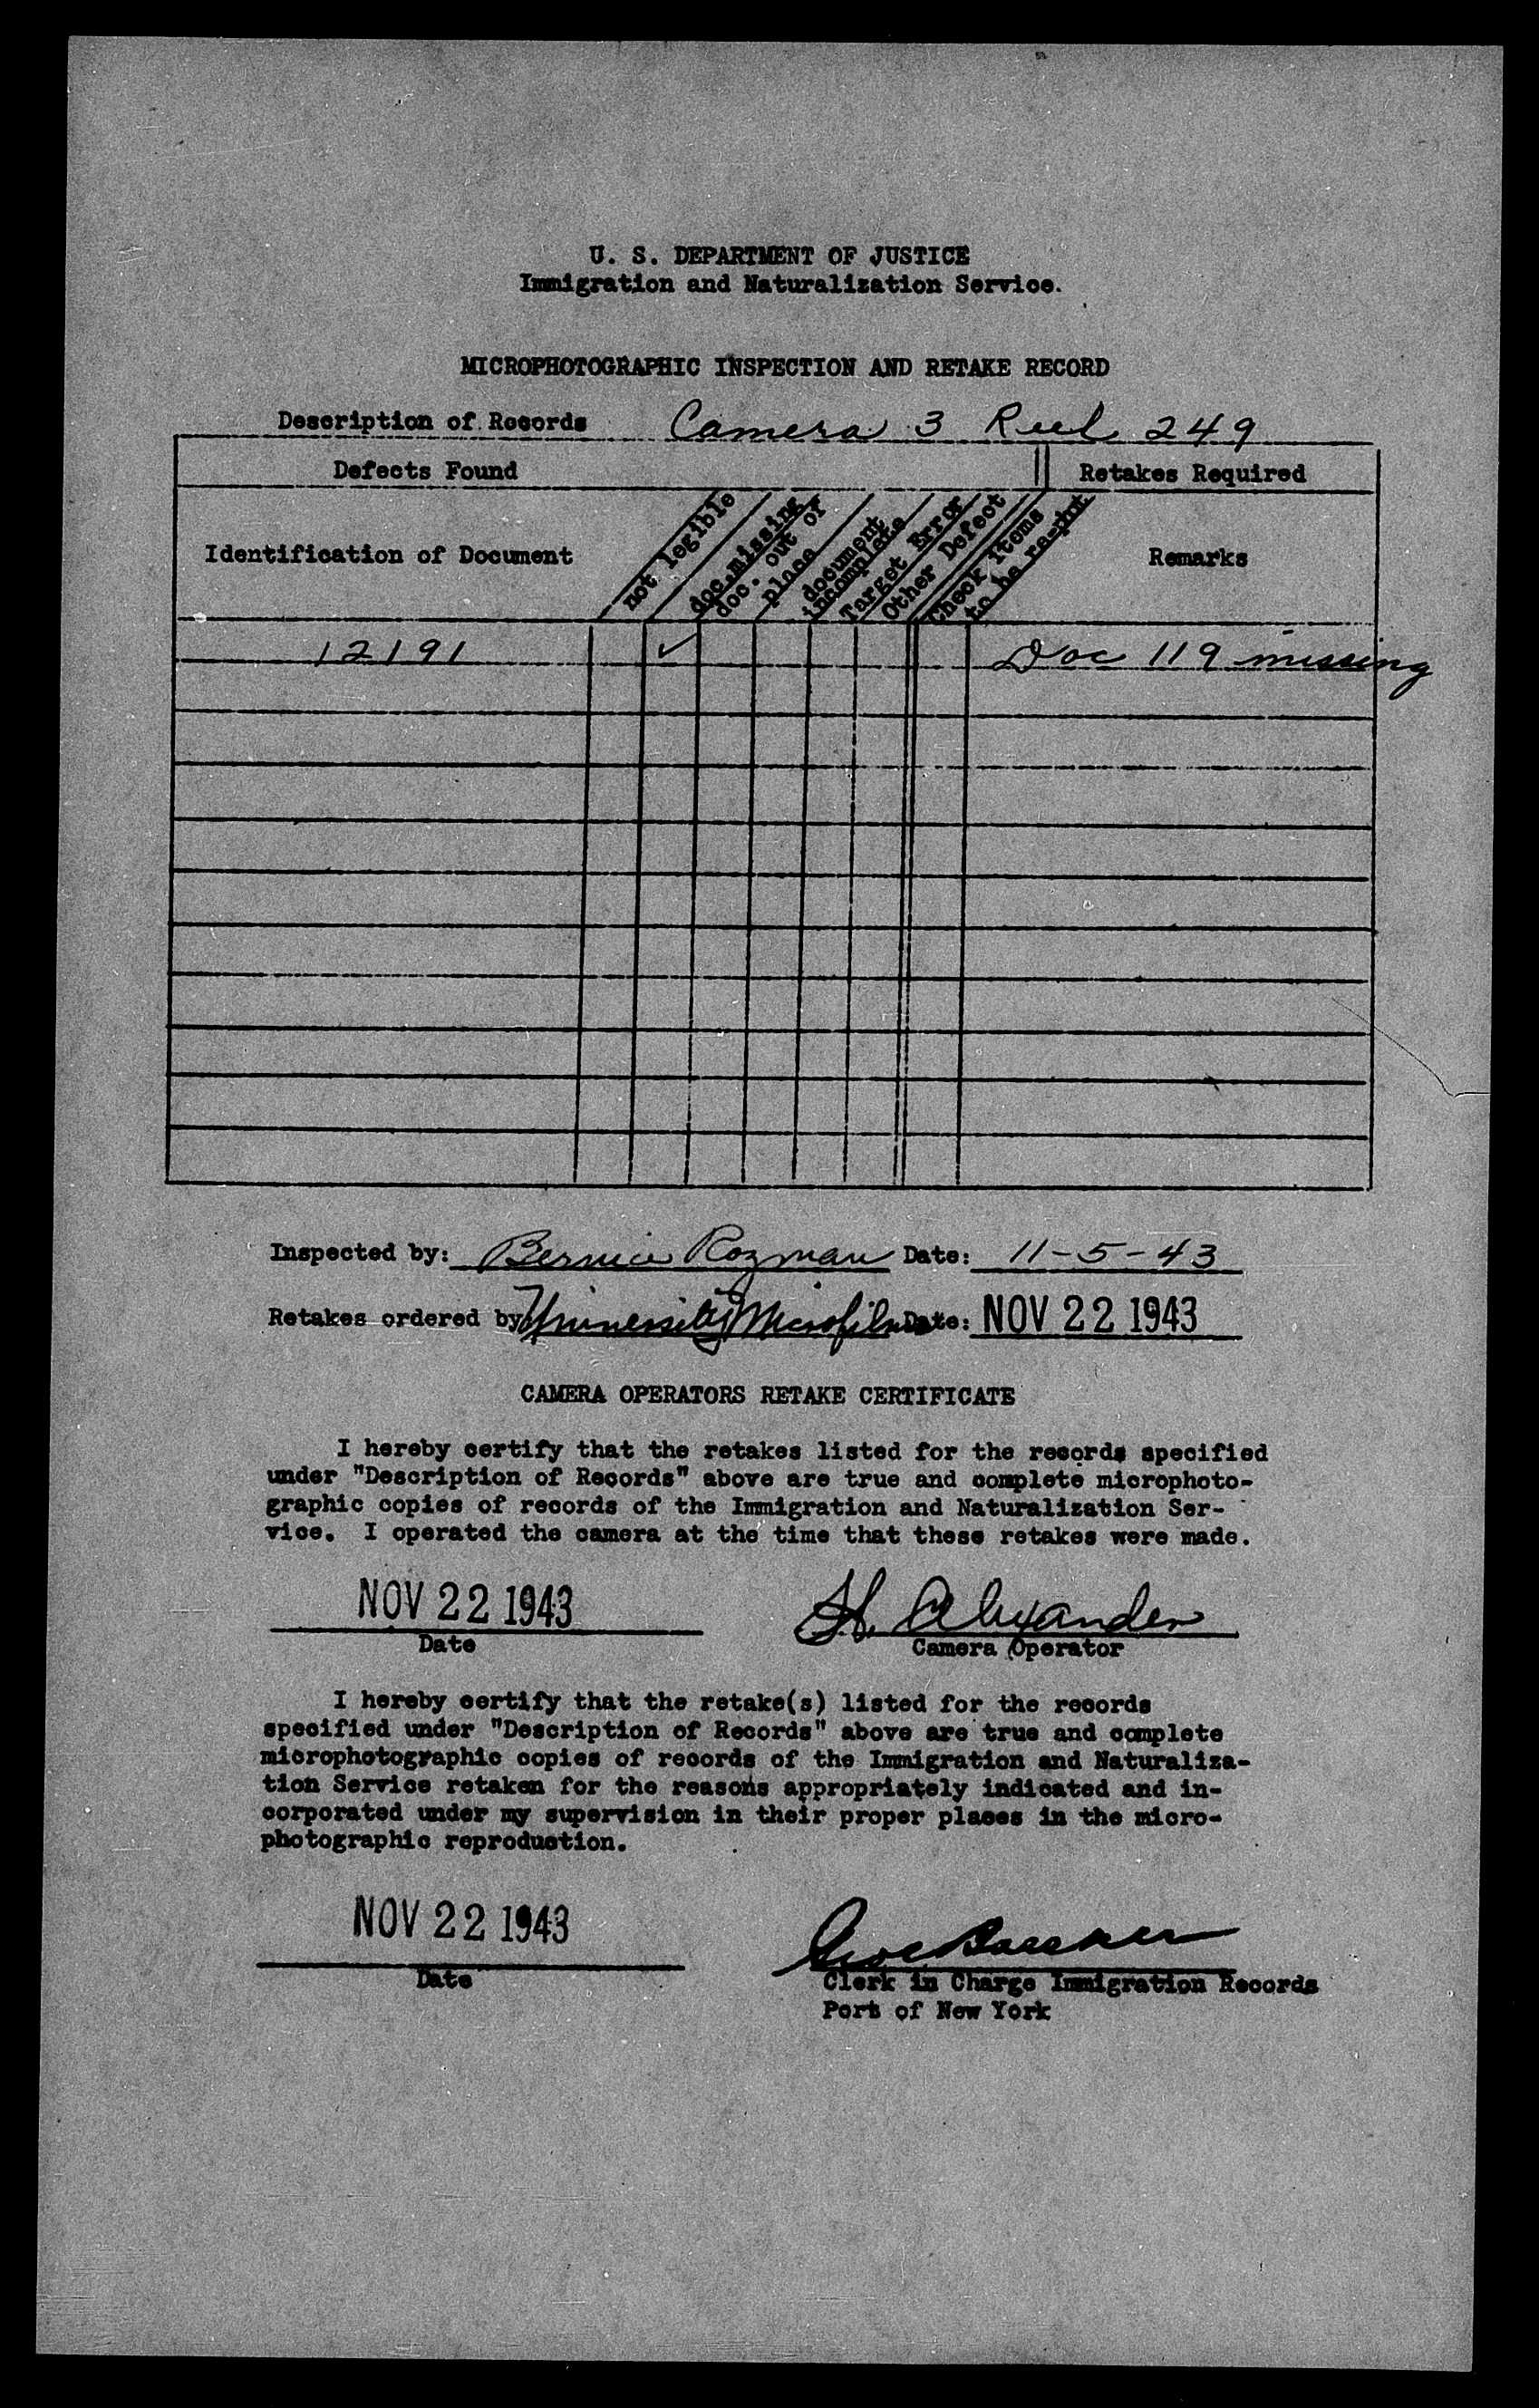 U. S. DEPARTMENT OF JUSTICE
Immigration and Naturalization Service.
MICROPHOTOGRAPHIC INSPECTION AND RETAKE RECORD
Description of Records Camera 3 Reel 249
Defects Found Retakes Required
Identification of Document
not legible
doc. missing
doc. out of
place
document
incomplete
Target Error
Other Defect
Check items
to be re-phot
Remarks
12191 ✓ Doc 119 missing
Inspected by: Bernice Rozman Date: 11-5-43
Retakes ordered by University Microfilms Date: NOV 22 1943
CAMERA OPERATORS RETAKE CERTIFICATE
I hereby certify that the retakes listed for the records specified
under "Description of Records" above are true and complete microphoto-
graphic copies of records of the Immigration and Naturalization Ser-
vice. I operated the camera at the time that these retakes were made.
NOV 22 1943 H. Alexander
Date Camera Operator
I hereby certify that the retake(s) listed for the records
specified under "Description of Records" above are true and complete
microphotographic copies of records of the Immigration and Naturaliza-
tion Service retaken for the reasons appropriately indicated and in-
corporated under my supervision in their proper places in the micro-
photographic reproduction.
NOV 22 1943
Date Clerk in Charge Immigration Records
Port of New York